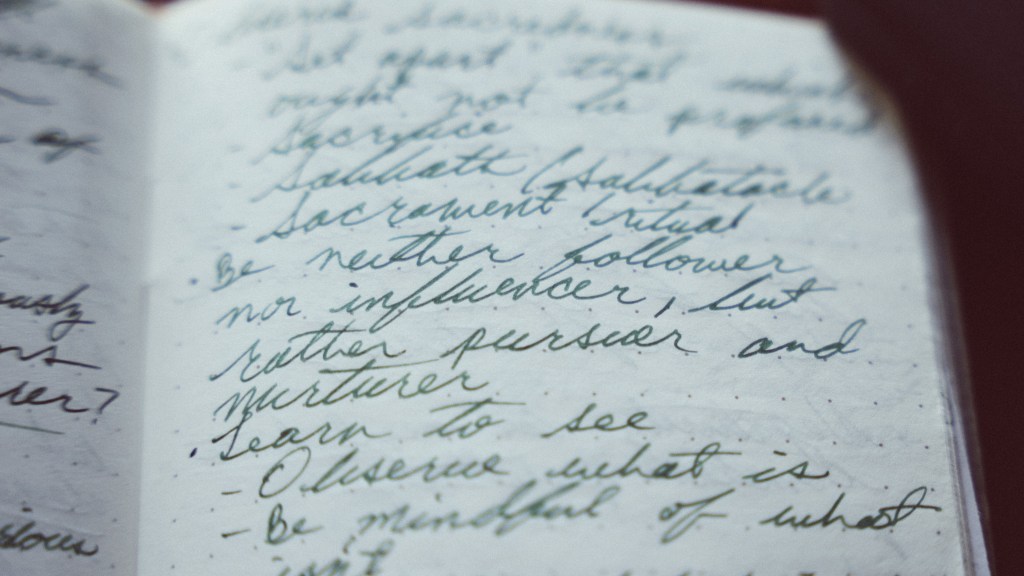 ously
rer?
Set apart that what
ought not be profaned
- Sacrifice
- Sabbath (
- Sacrament / ritual
· Be neither follower
nor influencer, but
rather pursuer and
nurturer
· Learn to see
- Observe what is
- Be mindful of what
isn't